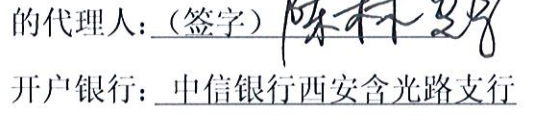 的代理人：（签字）陈林
开户银行：中信银行西安含光路支行